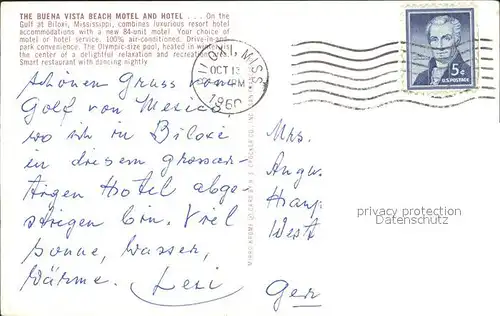 THE BUENA VISTA BEACH MOTEL AND HOTEL .... On the
Gulf at Biloxi, Mississippi, combines luxurious resort hotel
accommodations with a new 84-unit motel. Your choice of
motel or hotel service. 100% air-conditioned. Drive-in-and-
park convenience. The Olympic-size pool, heated in winter, is
the center of a delightful relaxation and recreation
Smart restaurant with dancing nightly
BILOXI, MISS.
OCT 13
PM
1960
5¢
U.S. POSTAGE
Schönen Gruss vom
Golf von Mexico,
wo ich in Biloxi
in diesem grossar-
tigen Hotel abge-
stiegen bin. Viel
Sonne, Wasser,
Wärme.
Mrs.
Angw.
West
Ger
privacy protection
Datenschutz